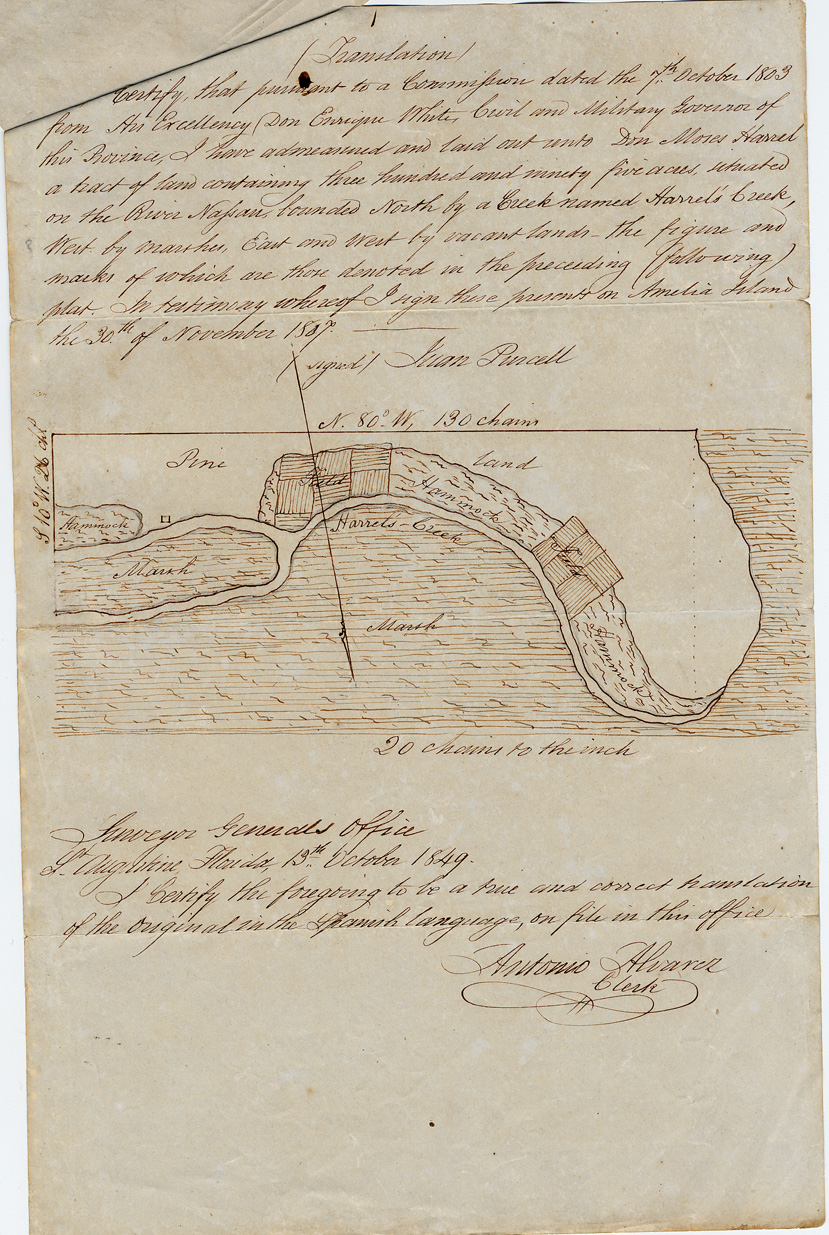 (Translation)
Certify, that pursuant to a Commission dated the 7th October 1803
from His Excellency Don Enrique White, Civil and Military Governor of
this Province, I have admeasured and laid out unto Don Moses Harrel
a tract of land containing three hundred and ninety five acres, situated
on the River Nassau, bounded North by a Creek named Harrel's Creek,
West by marshes, East and West by vacant lands - the figure and
marks of which are those denoted in the preceeding (following)
plat. In testimony whereof I sign these presents on Amelia Island
the 30th of November 1807.
(signed) Juan Purcell
N. 80° W, 130 chains
S 10° W 26 ch.
Pine
land
Field
Hammock
Hammock
Harrel's - Creek
Field
Marsh
Marsh
Hammock
20 chains to the inch
Surveyor Generals Office
St. Augustine, Florida, 13th October 1849.
I Certify the foregoing to be a true and correct translation
of the original in the Spanish language, on file in this office
Antonio Alvarez
Clerk